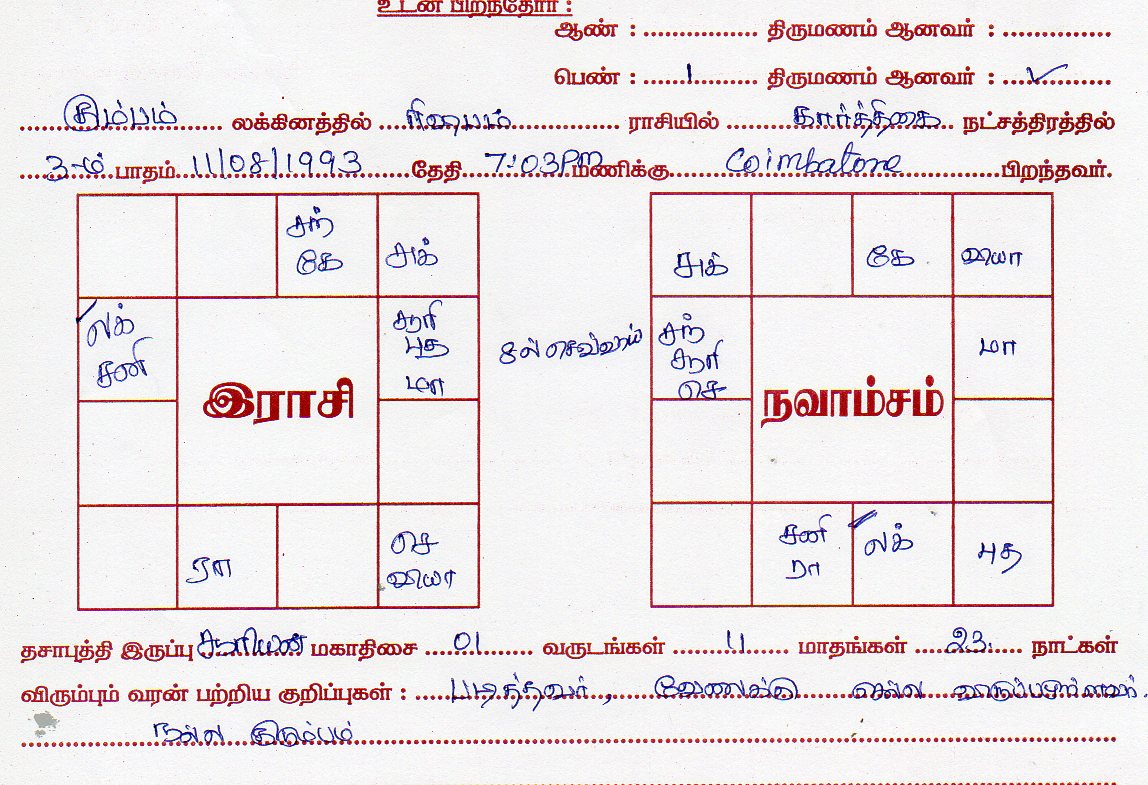 உடன் பிறந்தோர் :
ஆண் : .............. திருமணம் ஆனவர் : ..............
பெண் : ......1........ திருமணம் ஆனவர் : ....✓..........
கும்பம் லக்கினத்தில் ரிஷபம் ராசியில் கார்த்திகை நட்சத்திரத்தில்
3-ம் பாதம் 11/08/1993 தேதி 7:03PM மணிக்கு Coimbatore பிறந்தவர்.
சந் கே
சுக்
லக் சனி
சூரி புத மா
இராசி
ரா
செ வியா
8ல் செவ்வாய்
சுக்
கே
வியா
சந் சூரி செ
மா
நவாம்சம்
சனி ரா
லக்
புத
தசாபுத்தி இருப்பு சூரியன் மகாதிசை 01 வருடங்கள் 11 மாதங்கள் 23 நாட்கள்
விரும்பும் வரன் பற்றிய குறிப்புகள் : படித்தவர், வேலைக்கு செல்ல
நல்ல குடும்பம்